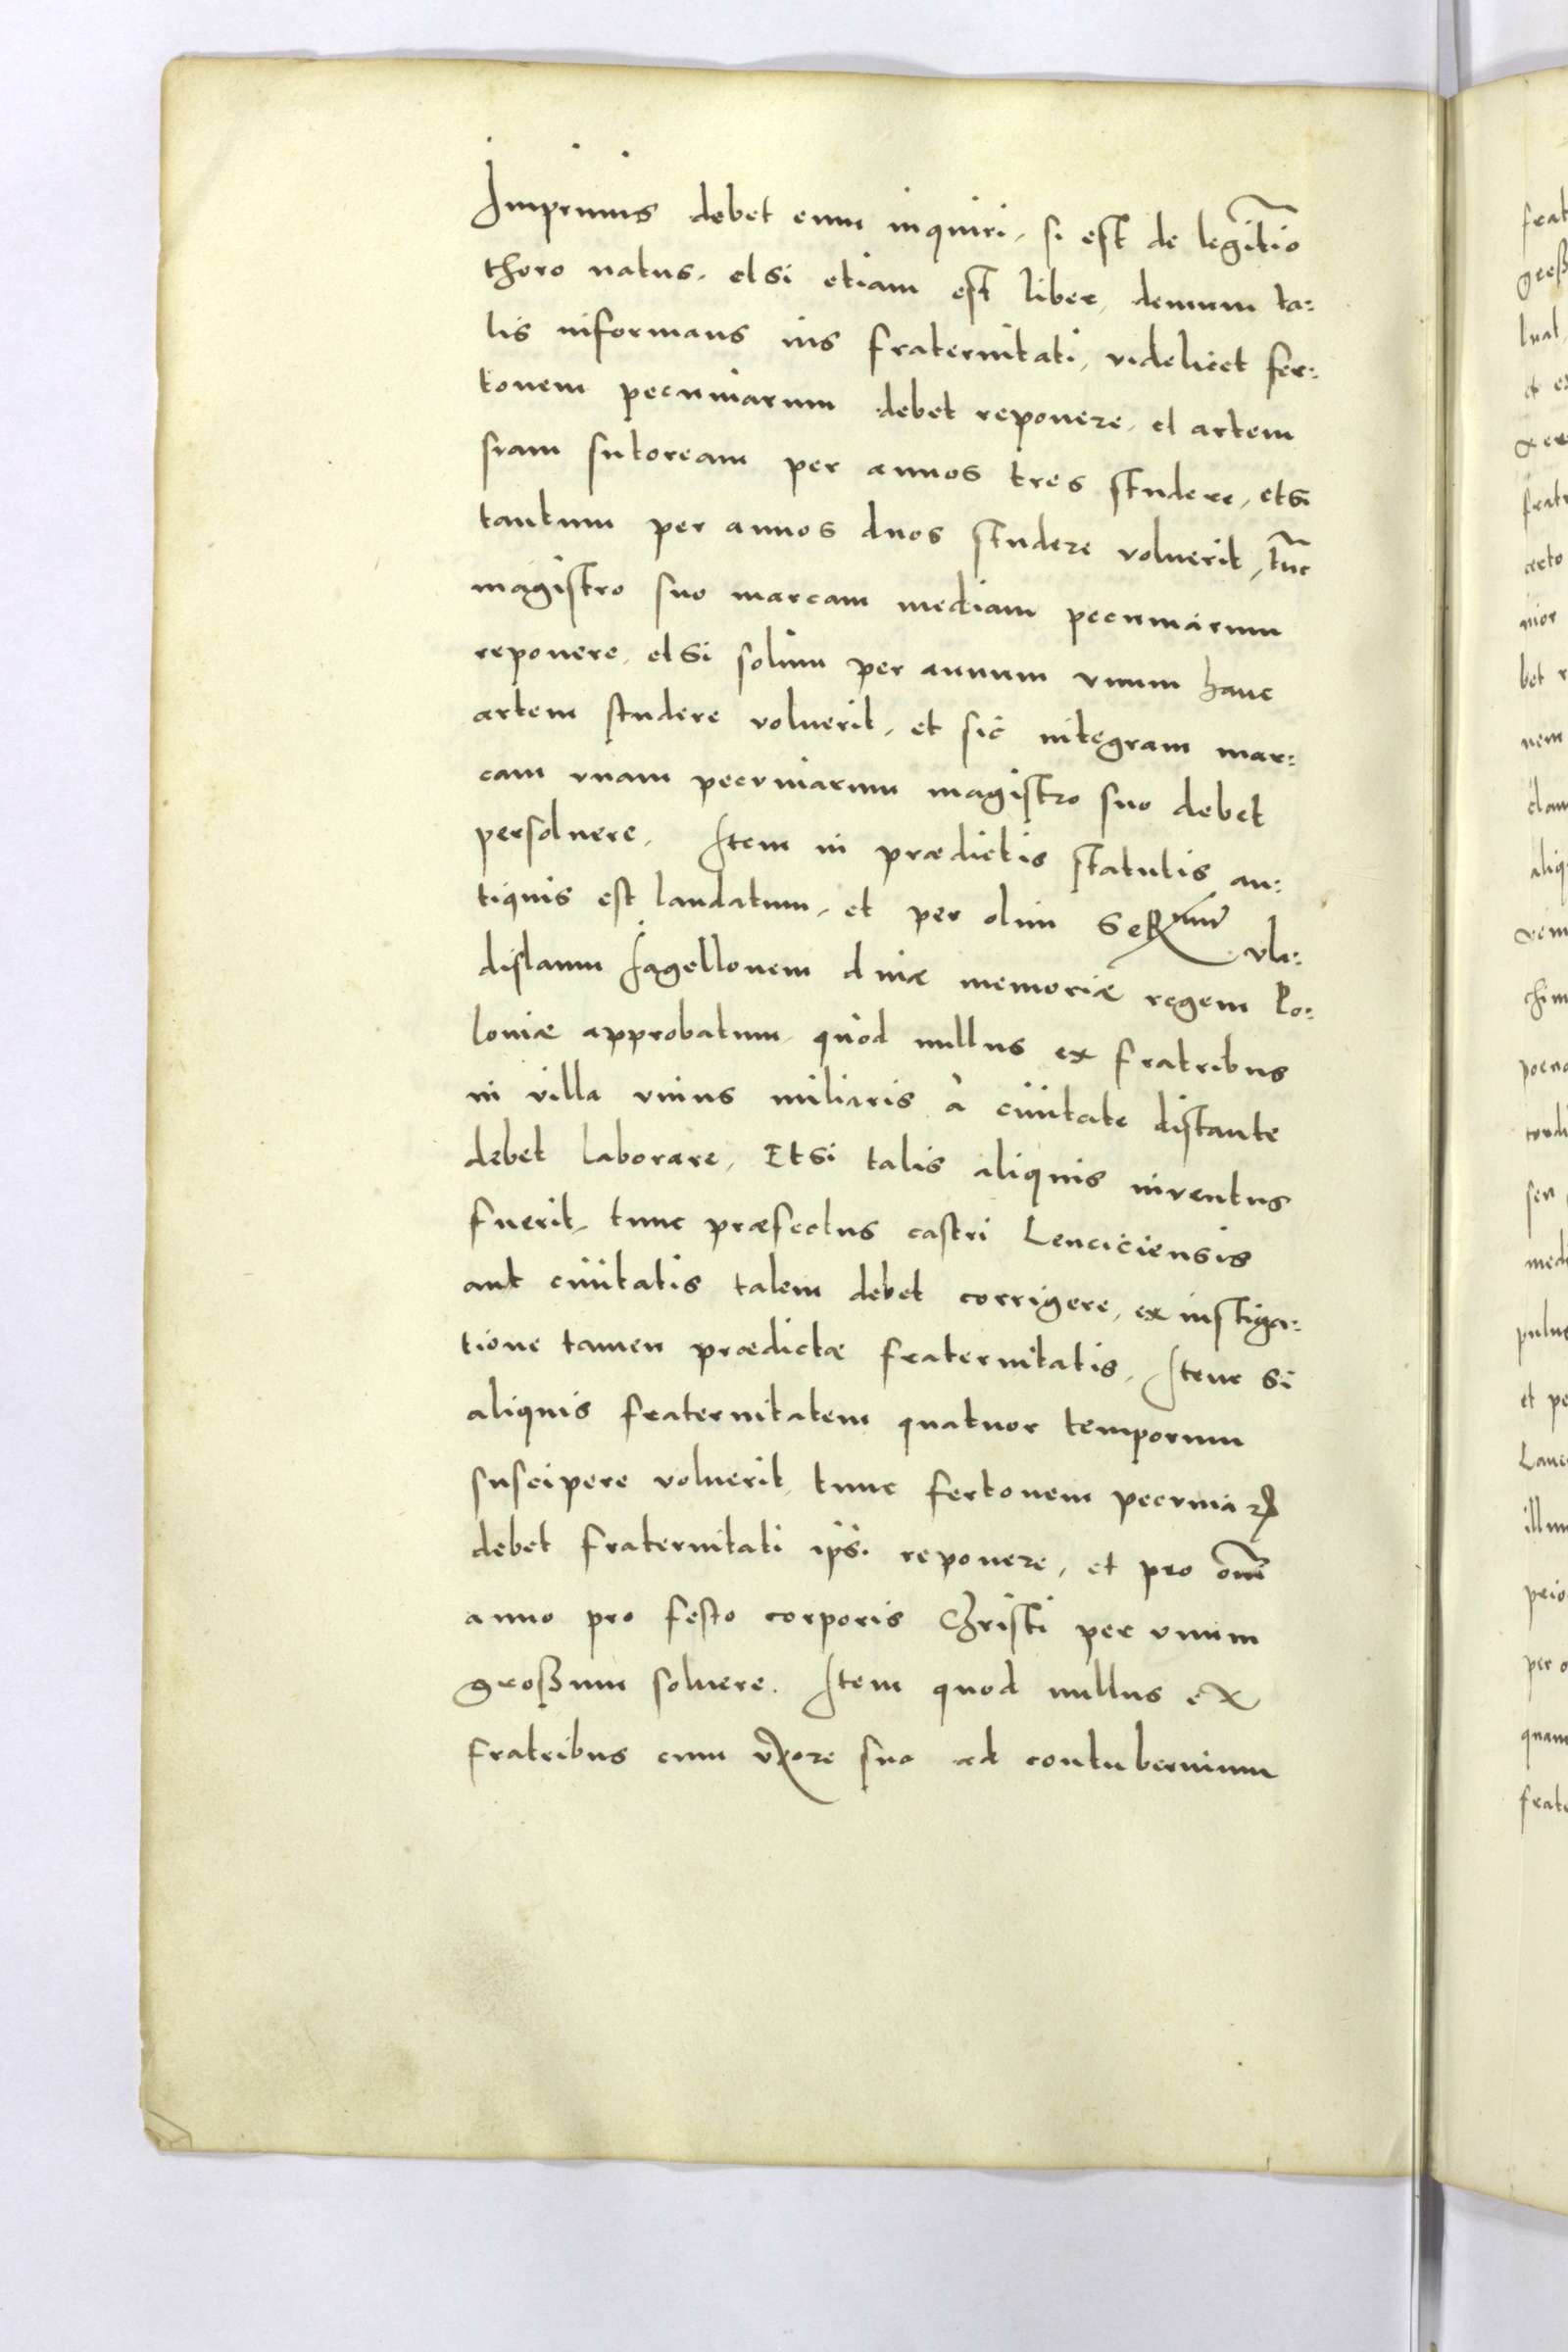 Imprimis debet eum inquiri, si est de legitĩo
thoro natus, et si etiam est liber, demum ta:
lis informans ius fraternitati, videlicet fer:
tonem pecuniarum debet reponere, et artem
suam sutoream per annos tres studere, etsi
tantum per annos duos studere voluerit, tũc
magistro suo marcam mediam pecuniarum
reponere, et si solum per annum vnum hanc
artem studere voluerit, et sic integram mar:
cam vnam pecuniarum magistro suo debet
persoluere. Item in prædictis statutis an:
tiquis est laudatum, et per olim SeR^mum Vla:
dislaum Jagellonem diuæ memoriæ regem Po:
loniæ approbatum, quòd nullus ex fratribus
in villa vnius miliaris à ciuitate distante
debet laborare, Et si talis aliquis inventus
fuerit, tunc præfectus castri Lenciciensis
aut ciuitatis talem debet corrigere, ex instiga:
tione tamen prædictæ fraternitatis, Item si
aliquis fraternitatem quatuor temporum
suscipere voluerit, tunc fertonem pecuniaꝝ
debet fraternitati ipsi reponere, et pro om̃i
anno pro festo corporis Christi per vnum
großum soluere. Item quod nullus ex
fratribus cum vxore sua ad contubernium
frat
lnat
et ex
fratr
nior
bet
nem
aliq
sen
et pe
prio
per o
quam
frat